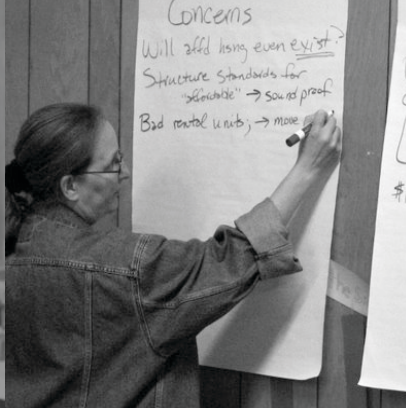 Concerns
Will aff'd hsng even exist?
Structure Standards for
"affordable" → sound proof
Bad rental units; → move
$